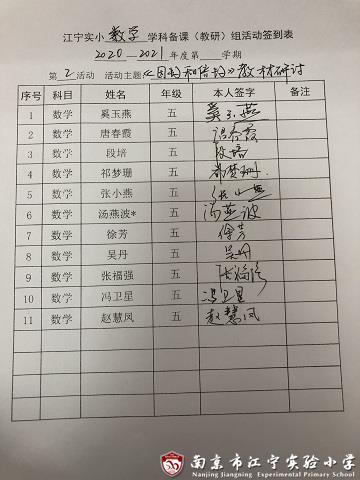 江宁实小 数学 学科备课（教研）组活动签到表
2020—2021 年度第 学期
第 2 活动 活动主题《因数和倍数》教材研讨
序号 科目 姓名 年级 本人签字 备注
1 数学 奚玉燕 五 奚玉燕
2 数学 唐春霞 五 唐春霞
3 数学 段培 五 段培
4 数学 祁梦珊 五 祁梦珊
5 数学 张小燕 五 张小燕
6 数学 汤燕波* 五 汤燕波
7 数学 徐芳 五 徐芳
8 数学 吴丹 五 吴丹
9 数学 张福强 五 张福强
10 数学 冯卫星 五 冯卫星
11 数学 赵慧凤 五 赵慧凤
南京市江宁实验小学
Nanjing Jiangning Experimental Primary School